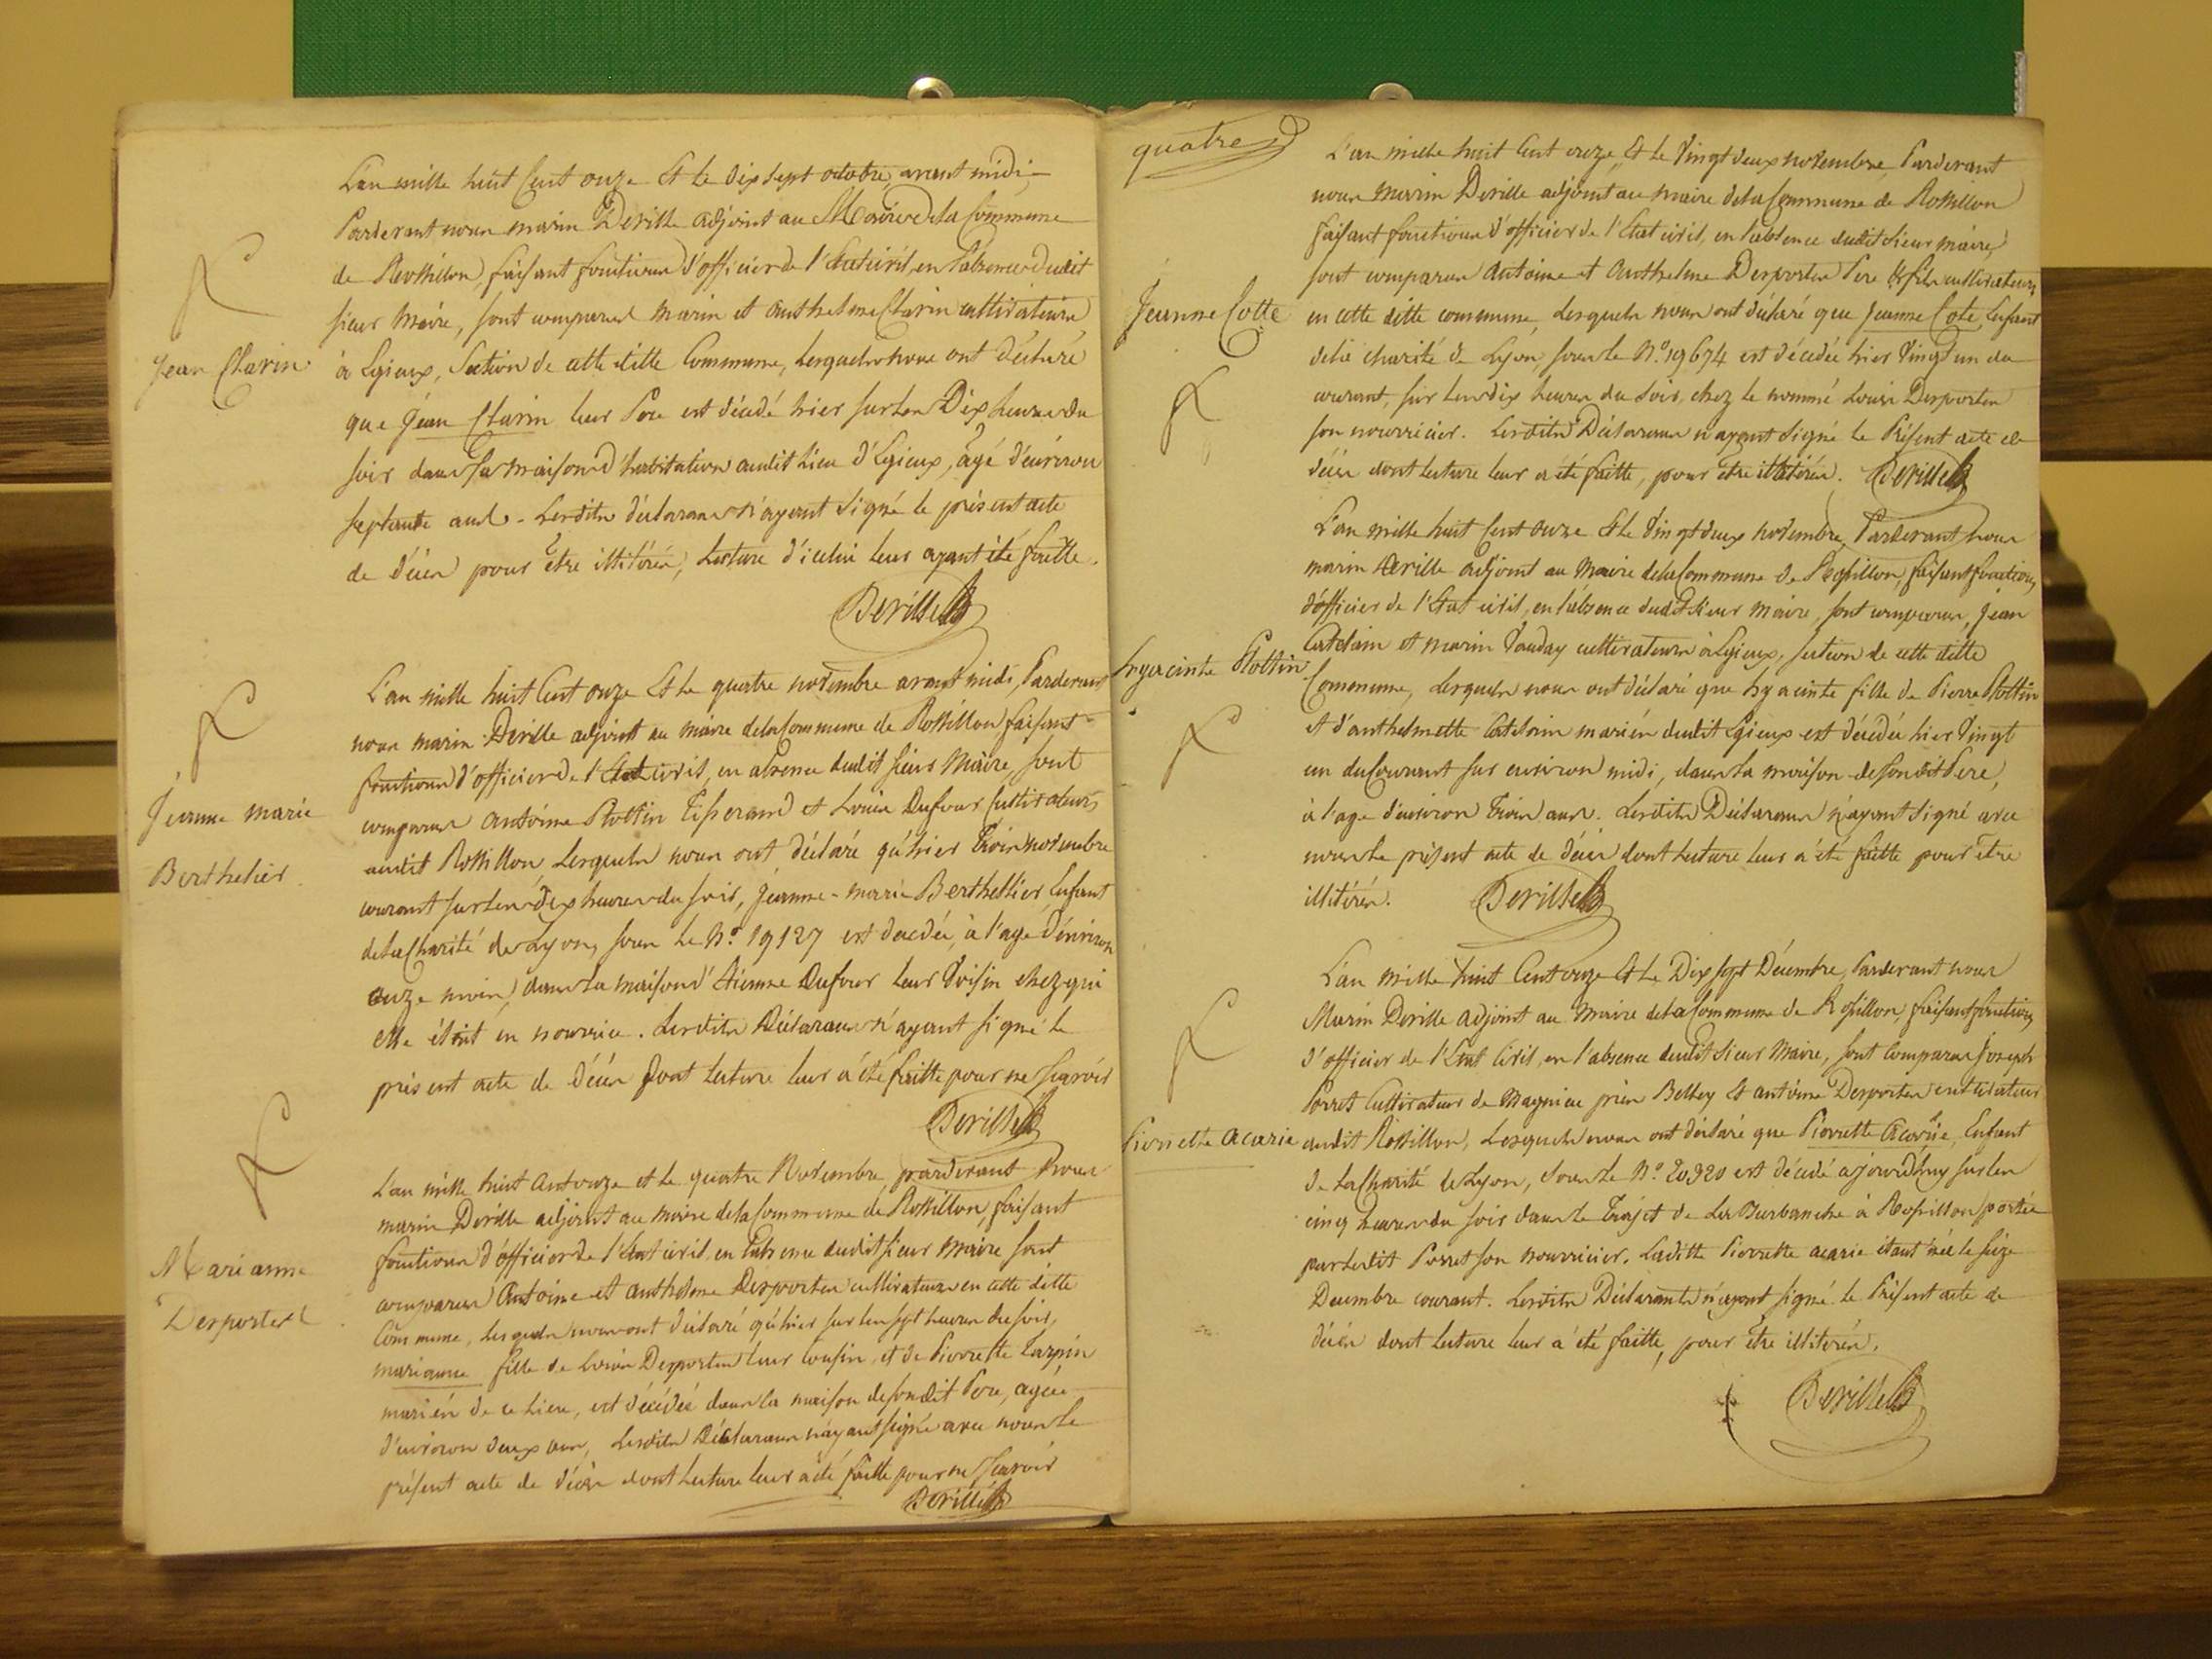 Jean Clarin
L'an mille huit Cent onze Et le dix sept octobre, avant midi,
Pardevant nous marin Deville adjoint au Maire de la Commune
de Rossillon, faisant fonctions d'officier de l'Etat civil, en l'absence dudit
sieur Maire, sont comparus marin et anthelme Clarin cultivateurs
à Egieux, Section de cette ditte Commune, lesquels nous ont déclaré
que Jean Clarin leur Pere est décédé hier sur les Dix heures du
soir dans sa maison d'habitation audit lieu d'Egieux, agé d'environ
septante ans. Lesdits déclarans n'ayant signé le présent acte
de décès pour être illitérés, Lecture d'icelui leur ayant été faitte.
Deville
Jeanne marie
Berthelier
L'an mille huit Cent onze Et le quatre novembre avant midi, Pardevant
nous marin Deville adjoint au maire de la Commune de Rossillon, faisant
fonctions d'officier de l'Etat civil, en absence dudit sieur Maire, sont
comparus antoine Rottin Tisserand et Louis Dufour Cultivateurs
audit Rossillon, Lesquels nous ont déclaré qu'hier Trois novembre
courant sur les dix heures du soir, Jeanne-marie Berthellier, Enfant
de la Charité de Lyon, sous le N.º 19127 est décédée, à l'age d'environ
onze mois, dans la maison d'Etienne Dufour leur Voisin chez qui
elle étoit en nourrice. Lesdits Déclarans n'ayant signé le
présent acte de Décès dont lecture leur a été faitte pour ne sçavoir
Deville
Marianne
Desportes
L'an mille huit Cent onze et le quatre Novembre, pardevant Nous
marin Deville adjoint au maire de la Commune de Rossillon, faisant
fonctions d'officier de l'Etat civil, en l'absence dudit sieur Maire sont
comparus Antoine et anthelme Desportes cultivateurs en cette ditte
Commune, lesquels nous ont déclaré qu'hier sur les sept heures du soir,
marianne fille de Louis Desportes leur cousin, et de Pierrette Carpin
mariés de ce Lieu, est décédée dans la maison de sondit Pere, agée
d'environ deux ans, Lesdits Déclarans n'ayant signé avec nous le
présent acte de décès dont Lecture leur a été faitte pour ne sçavoir
Deville
quatre
Jeanne Cotte
L'an mille huit Cent onze, Et le Vingt deux novembre, Pardevant
nous Marin Deville adjoint au maire de la Commune de Rossillon
faisant fonctions d'officier de l'Etat civil, en l'absence dudit sieur maire,
sont comparus Antoine et Anthelme Desportes Pere & fils cultivateurs
en cette ditte commune, Lesquels nous ont déclaré que Jeanne Cote, Enfant
de la charité de Lyon, sous le N.º 19674 est décédée hier Vingt un du
courant, sur les dix heures du soir, chez le nommé Louis Desportes
son nourricier. Lesdits Déclarans n'ayant signé le Présent acte de
décès dont lecture leur a été faitte, pour être illitérés. Deville
hyacinte Rottin
L'an mille huit Cent onze Et le Vingt deux novembre, Pardevant nous
marin Deville adjoint au Maire de la Commune de Rossillon, faisant fonctions
d'officier de l'Etat civil, en l'absence dudit Sieur Maire, sont comparus, Jean
Catelain et marin Vauday cultivateurs à Egieux, section de cette ditte
Commune, Lesquels nous ont déclaré que hyacinte fille de Pierre Rottin
et d'anthelmette Catelain mariés dudit Egieux est décédée hier Vingt
un du courant sur environ midi, dans la maison de sondit Pere,
à l'age d'environ Trois ans. Lesdits Déclarans n'ayant signé avec
nous le présent acte de décès dont lecture leur a été faitte pour être
illitérés. Deville
Pierrette acarie
L'an mille huit Cent onze Et le Dix sept Décembre, Pardevant nous
Marin Deville adjoint au Maire de la Commune de Rossillon, faisant fonctions
d'officier de l'Etat Civil, en l'absence dudit Sieur Maire, sont Comparus Joseph
Porret Cultivateur de Magnieu près Belley Et antoine Desportes cultivateur
audit Rossillon, Lesquels nous ont déclaré que Pierrette Acarie, Enfant
de la Charité de Lyon, sous le N.º 20320 est décédé ajourd'huy sur les
cinq heures du soir dans le Trajet de La Burbanche à Rossillon, portée
par ledit Porret son nourricier. Laditte Pierrette acarie étant née le seize
Decembre courant. Lesdits Déclarants n'ayant signé le Présent acte de
décès dont lecture leur a été faitte, pour être illitérés.
Deville